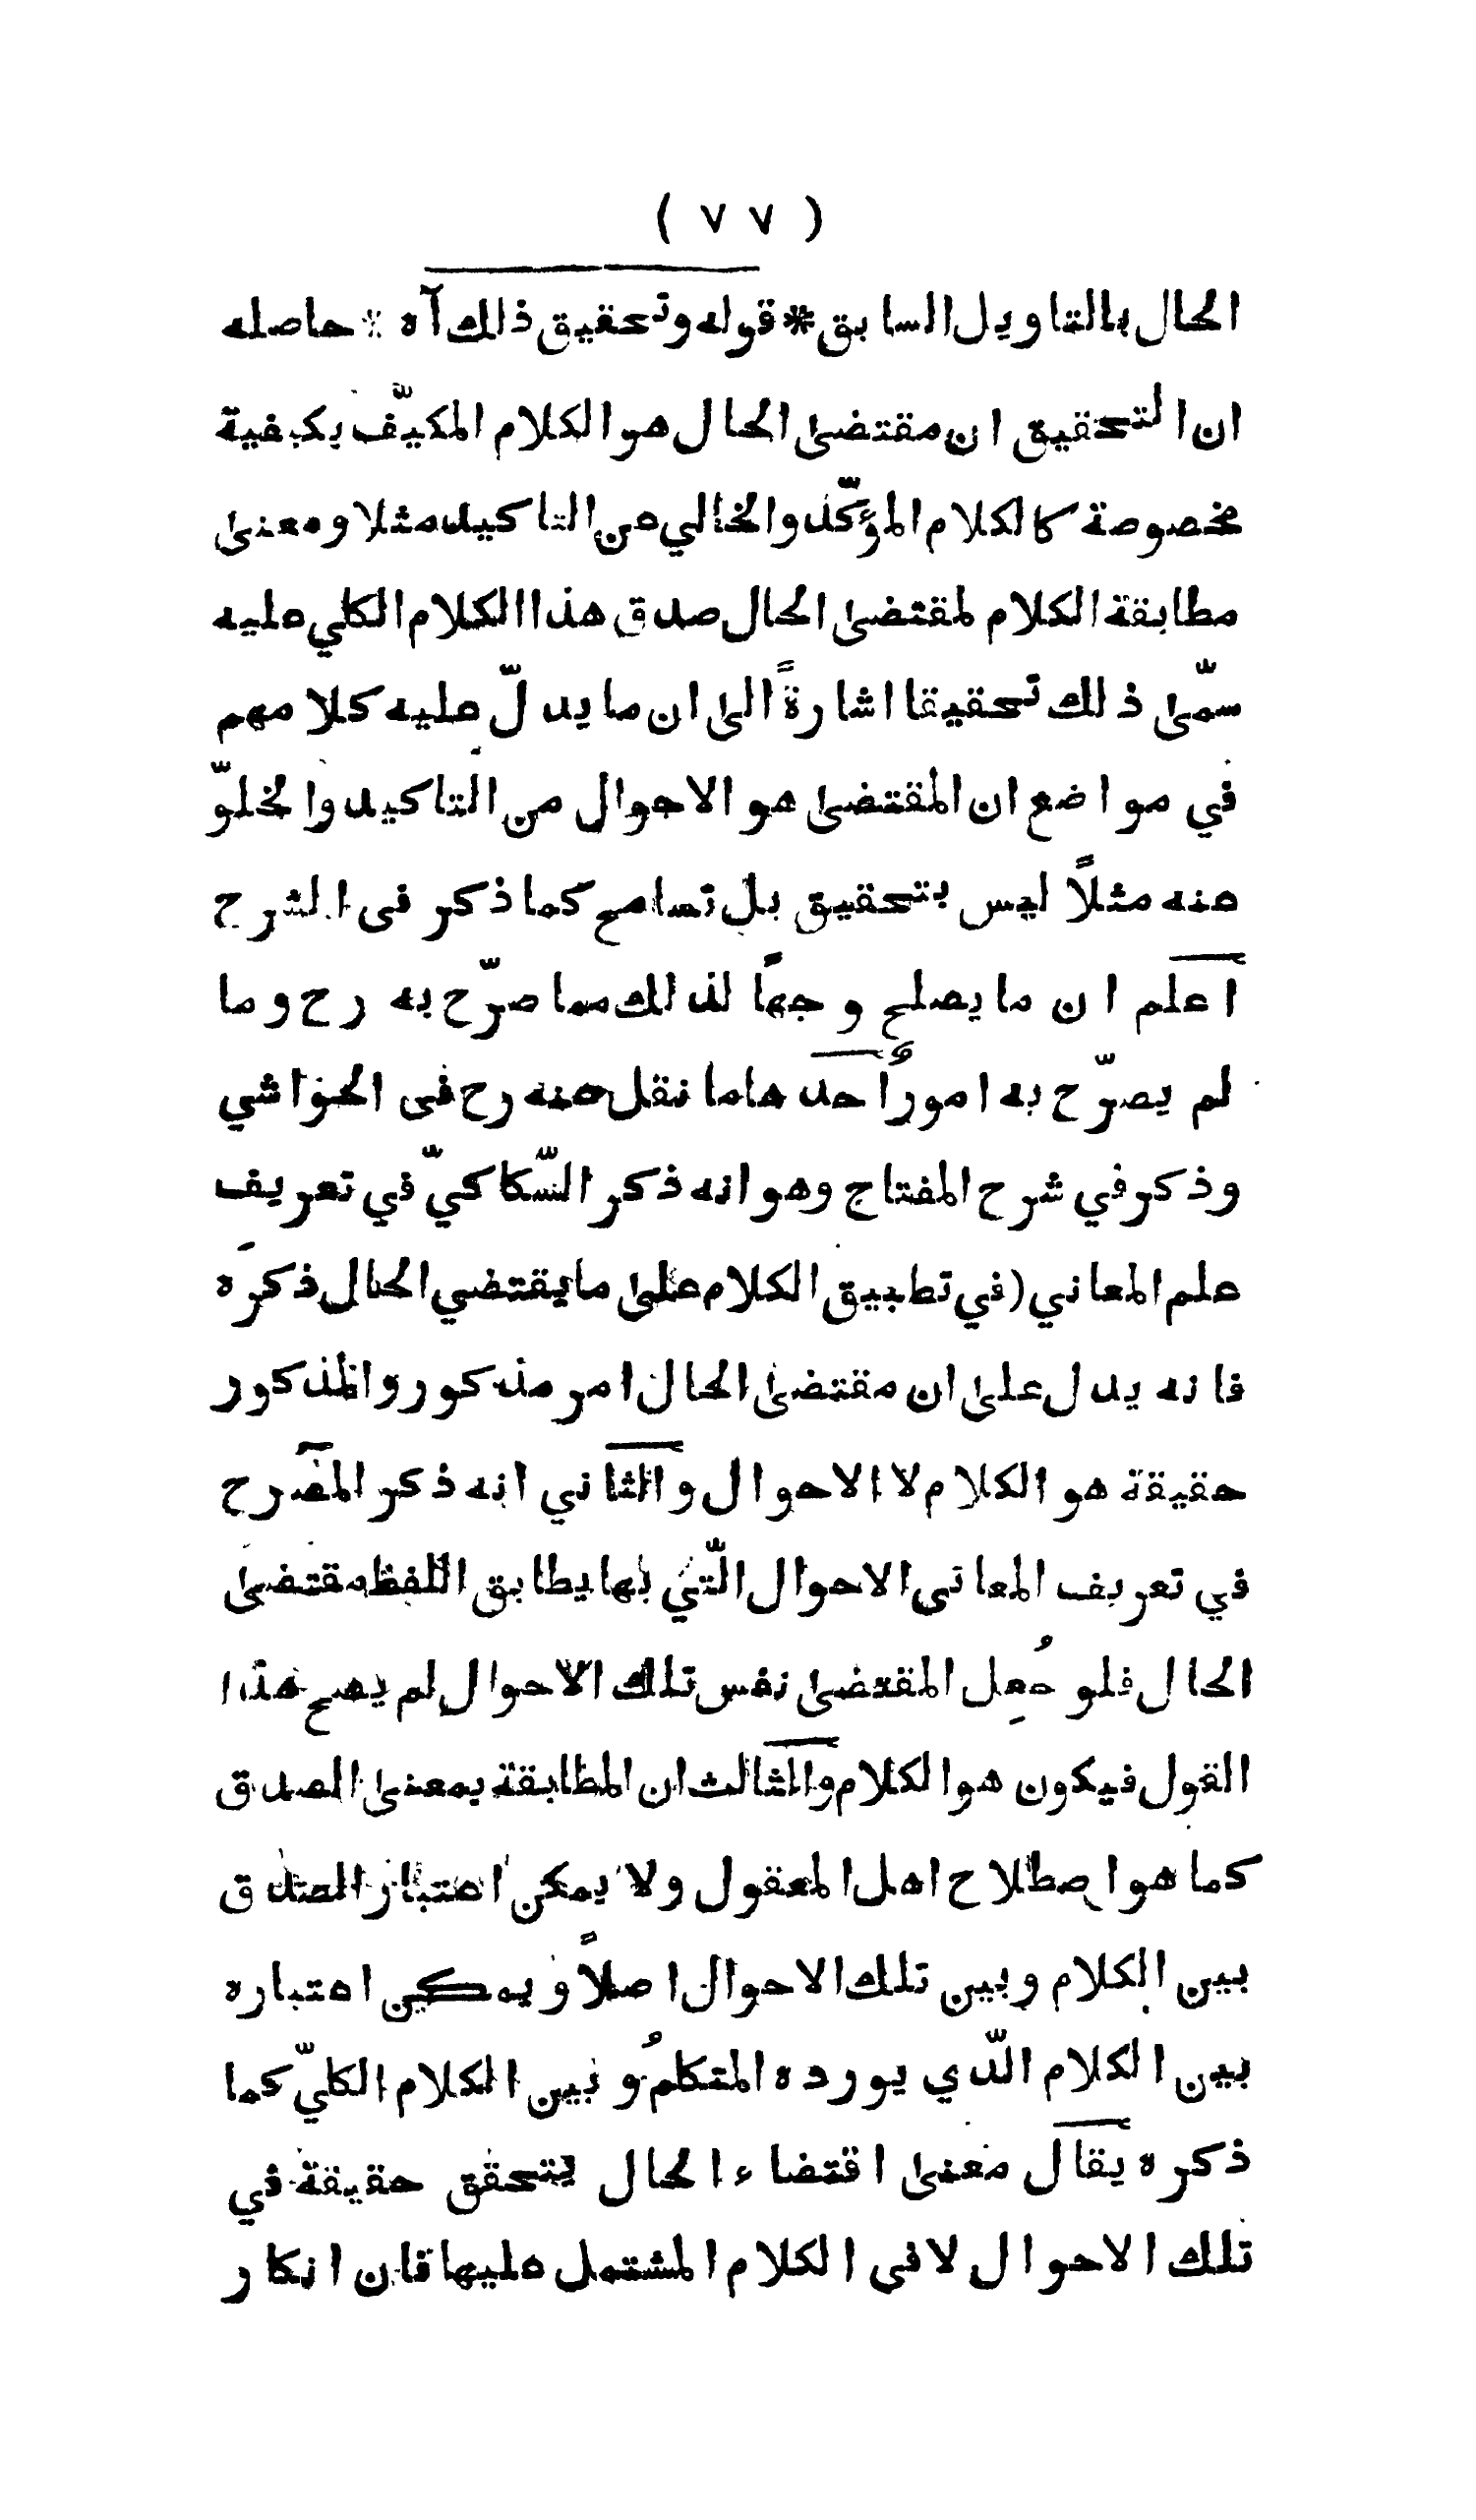 ( ٧٧ )
الحال بالتاويل السابق * قوله وتحقيق ذلك آه * حاصله
ان التحقيق ان مقتضى الحال هو الكلام المكيّف بكيفية
مخصوصة كالكلام المؤكّد والخالي من التاكيد مثلا ومعنى
مطابقة الكلام لمقتضى الحال صدق هذا الكلام الكلي عليه
سمّى ذلك تحقيقا اشارةً الى ان ما يدلّ عليه كلامهم
في مواضع ان المقتضى هو الاحوال من التاكيد والخلوّ
منه مثلاً ليس بتحقيق بل تسامح كما ذكر فى الشرح
اعلم ان ما يصلح وجهاً لذلك مما صرّح به رح وما
لم يصرّح به اموراً احدها ما نقل عنه رح فى الحواشي
وذكر في شرح المفتاح وهو انه ذكر السّكاكيّ في تعريف
علم المعاني (في تطبيق الكلام على ما يقتضي الحال ذكره
فانه يدل على ان مقتضى الحال امر مذكور والمذكور
حقيقة هو الكلام لا الاحوال والثاني انه ذكر المصرح
في تعريف المعانى الاحوال الّتي بها يطابق اللفظ مقتضى
الحال فلو جُعِل المقتضى نفس تلك الاحوال لم يصح هذا
القول فيكون هو الكلام والثالث ان المطابقة بمعنى الصدق
كما هو اصطلاح اهل المعقول ولا يمكن اعتبار الصدق
بين الكلام وبين تلك الاحوال اصلاً ويمكن اعتباره
بين الكلام الّذي يورده المتكلمُ وبين الكلام الكليّ كما
ذكره يقال معنى اقتضاء الحال يتحقق حقيقة في
تلك الاحوال لا فى الكلام المشتمل عليها فان انكار